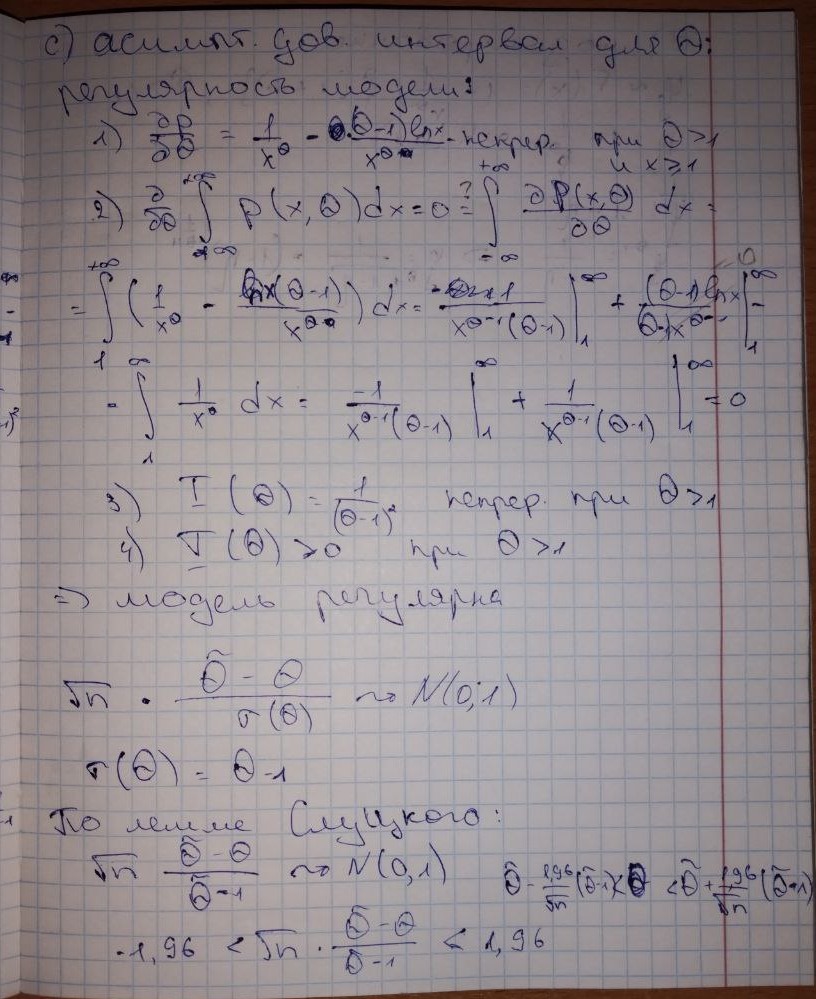 c) асимпт. дов. интервал для θ:
регулярность модели:
1) ∂p/∂θ = 1/x^θ - (θ-1)lnx/x^θ - непрер. при θ>1
и x≥1
2) ∂/∂θ ∫_{-∞}^{+∞} p(x,θ)dx = 0 =? ∫_{-∞}^{+∞} ∂p(x,θ)/∂θ dx =
= ∫_1^{+∞} (1/x^θ - lnx(θ-1)/x^θ) dx = -1/(x^{θ-1}(θ-1)) |_1^∞ + (θ-1)lnx/((θ-1)x^{θ-1}) |_1^∞ -
- ∫_1^∞ 1/x^θ dx = -1/(x^{θ-1}(θ-1)) |_1^∞ + 1/(x^{θ-1}(θ-1)) |_1^∞ = 0
3) I(θ) = 1/(θ-1)^2 непрер. при θ>1
4) I(θ) > 0 при θ>1
=> модель регулярна
√n · (θ̃ - θ)/σ(θ) ~ N(0;1)
σ(θ) = θ-1
По лемме Слуцкого:
√n (θ̃ - θ)/(θ̃ - 1) ~ N(0,1)
θ̃ - 1,96/√n (θ̃-1) < θ < θ̃ + 1,96/√n (θ̃-1)
-1,96 < √n · (θ̃ - θ)/(θ̃ - 1) < 1,96